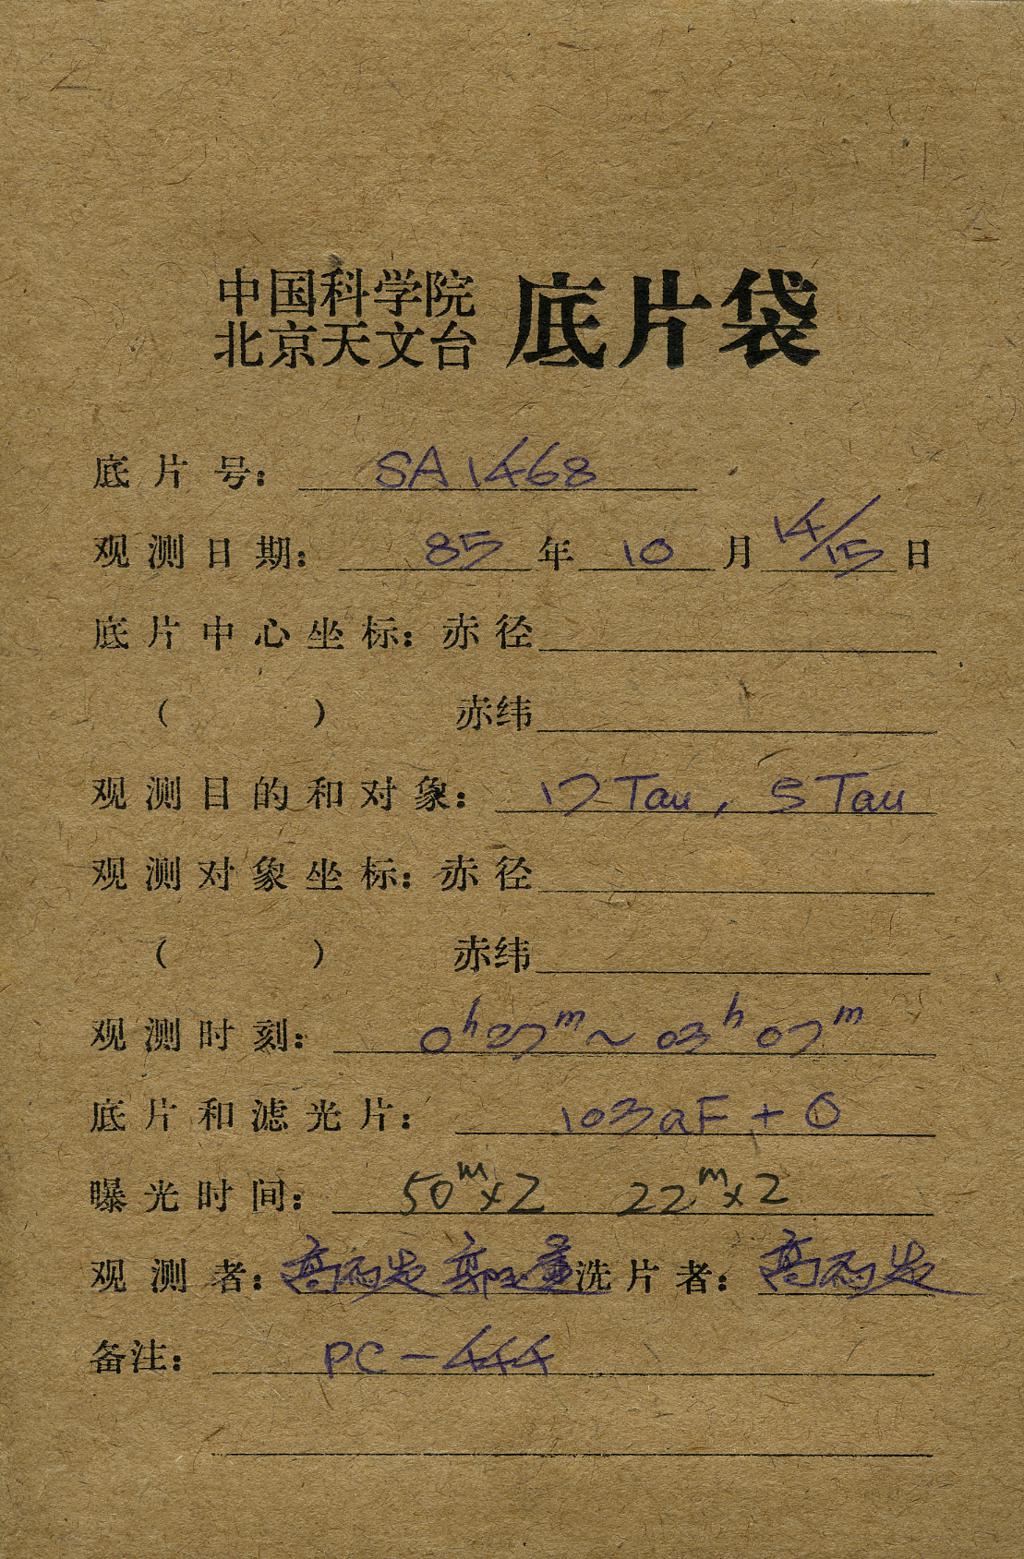 中国科学院
北京天文台 底片袋
底片号: SA 1468
观测日期: 85 年 10 月 14/15 日
底片中心坐标: 赤径
( ) 赤纬
观测目的和对象: 17 Tau, 5 Tau
观测对象坐标: 赤径
( ) 赤纬
观测时刻: 0h27m~03h07m
底片和滤光片: 103aF + O
曝光时间: 50m×2 22m×2
观测者: 洗片者:
备注: PC-444